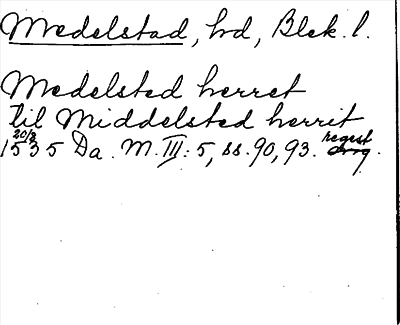 Medelstad, hd, Blek. l.
Medelsted herret
til Middelsted herrit
20/3 1535 Da. M. III: 5, ss. 90, 93. regist